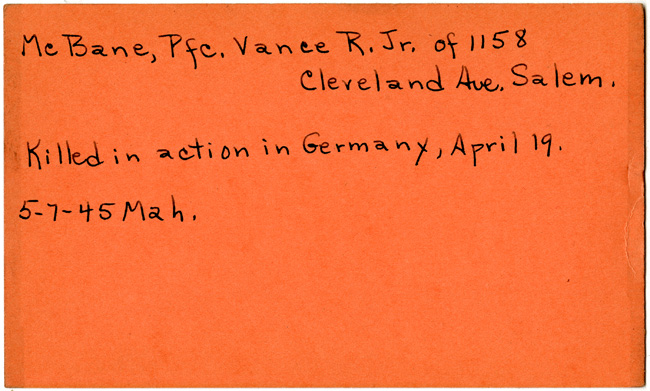 McBane, Pfc. Vance R. Jr. of 1158
Cleveland Ave. Salem.
Killed in action in Germany, April 19.
5-7-45 Mah.